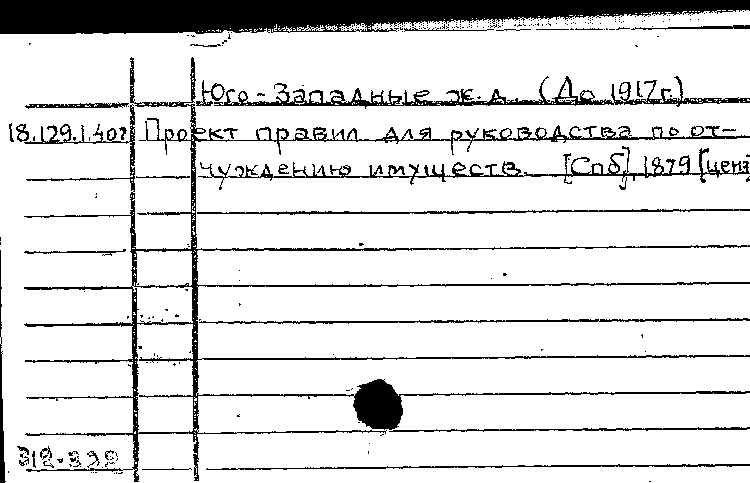 Юго-Западные ж.д. (До 1917г.)
18.129.1.402 Проект правил для руководства по от-
чуждению имуществ. [Спб], 1879 [ценз